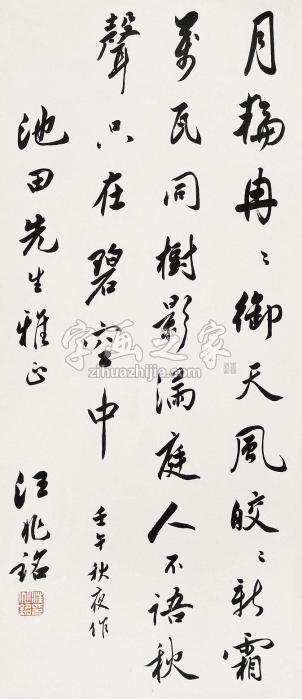 月轮冉〻御天风皎〻新霜
万瓦同树影满庭人不语秋
声只在碧空中
壬午秋夜作
池田先生雅正
汪兆铭
字画之家
zihuazhijia.com